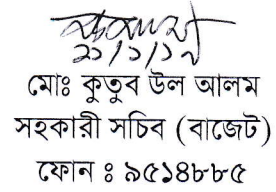 ২১/১/১৮
মোঃ কুতুব উল আলম
সহকারী সচিব (বাজেট)
ফোন ঃ ৯৫১৪৮৮৫